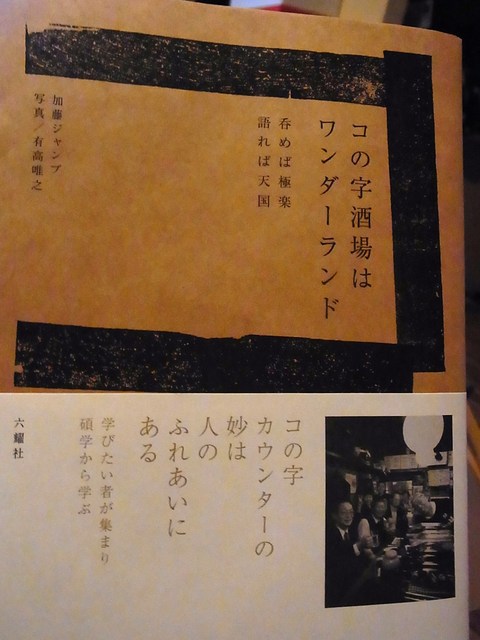 コの字酒場は
ワンダーランド
呑めば極楽
語れば天国
加藤ジャンプ
写真／有高唯之
コの字
カウンターの
妙は
人の
ふれあいに
ある
学びたい者が集まり
碩学から学ぶ
六耀社